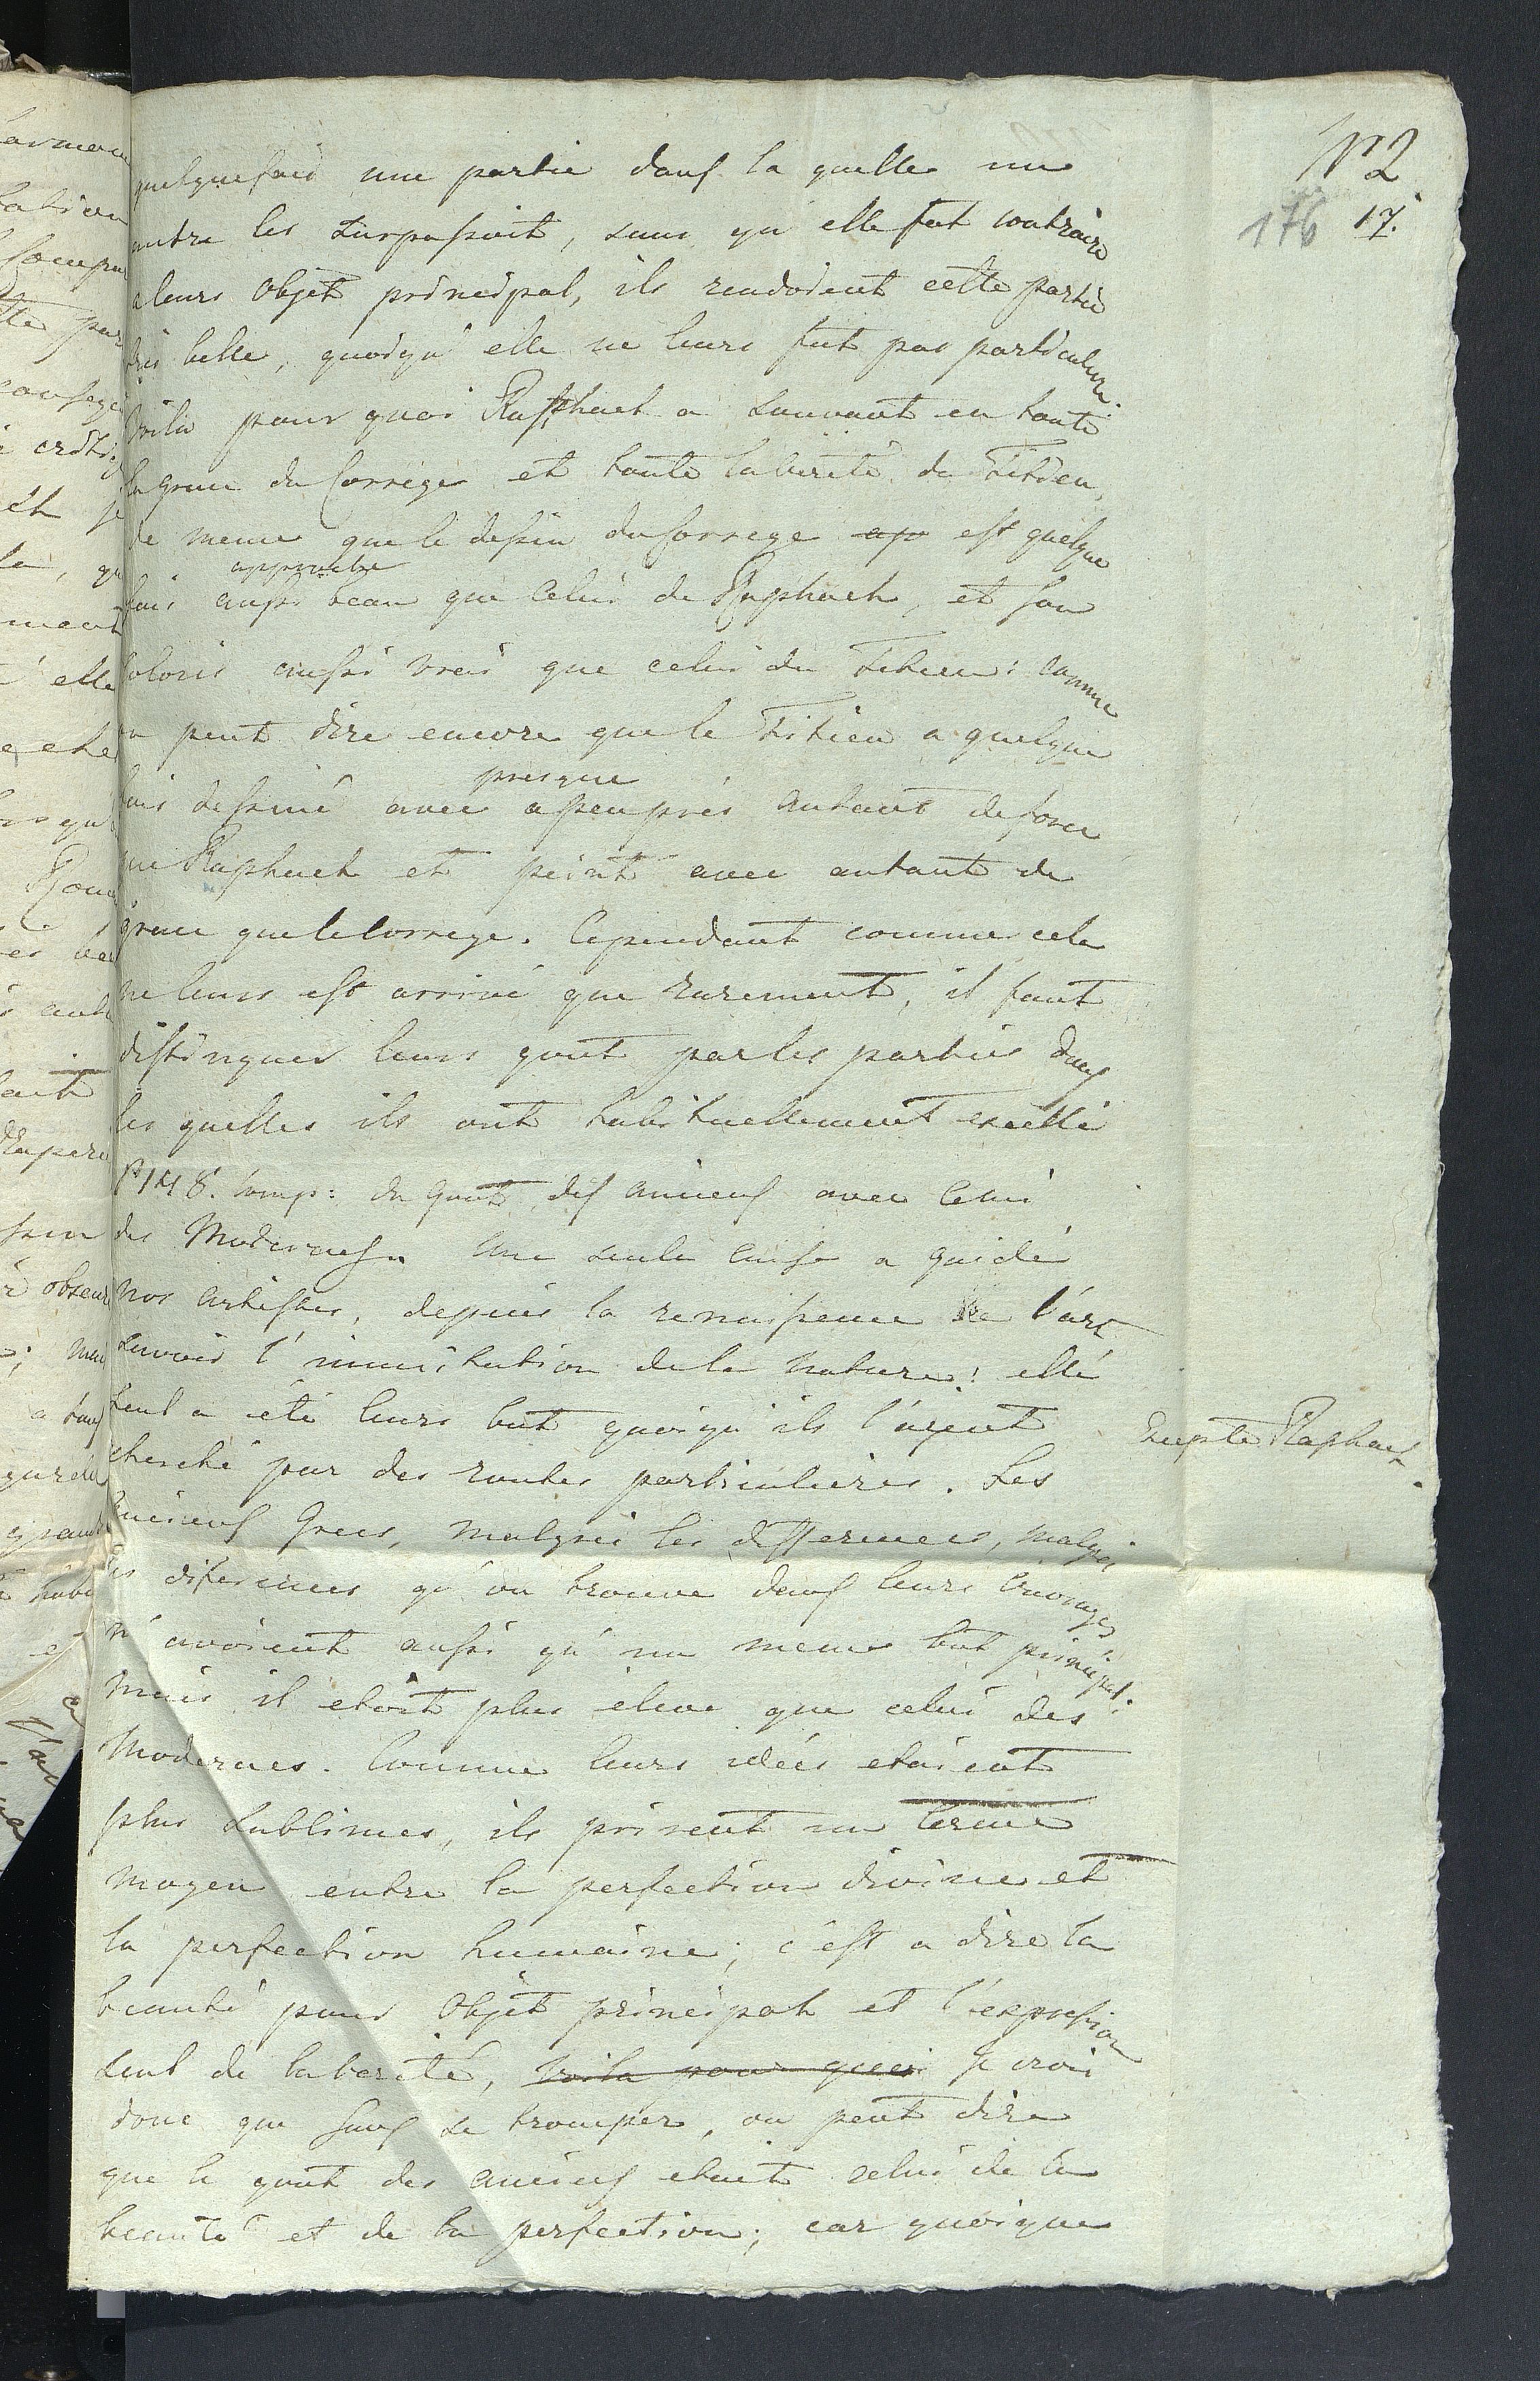 N° 2
176 17.
quelquefois une partie dans la quelle un
autre les surpassoit, sans qu'elle fut contraire
a leurs objet principal, ils rendoient cette partie
très belle, quoiqu'elle ne leurs fut pas particuliere.
Voila pour quoi Raphael a souvant eu toute
la grace du Correge et toute la verité du Titien,
de meme que le dessin du Correge ap est quelque
approche
fois aussi beau que celui de Raphael, et son
coloris aussi vrai que celui du Titien: comme
on peut dire encore que le Titien a quelque
presque
fois dessiné avec apeuprès autant de force
que Raphael et peint avec autant de
grace que le Correge. Cependant comme cela
ne leurs est arrivé que rarement, il faut
distinguer leurs gout par les parties dans
les quelles ils ont habituellement excellé
P. 148. Comp: du Gout des anciens avec celui
des Modernes. Une seule cause a guidé
nos artistes, depuis la renaissance de l'art
savoir l'immitation de la nature: elle
seul a été leurs but quoiqu'ils l'ayent
Excepté Raphael.
cherché par des routes particulieres. Les
anciens Grecs, malgré les differences, malgré
les diferences qu'on trouve dans leurs ouvrages
n'avoient aussi qu'un meme but principal.
Mais il etoit plus eleve que celui des
Modernes. Comme leurs idées etoient
plus sublimes, ils prirent un terme
moyen entre la perfection divine et
la perfection humaine; c'est a dire la
beauté pour objet principal et l'expression
seul de la verité, voila pour quoi Je crois
donc que sans se tromper, on peut dire
que le gout des anciens etoit celui de la
beauté et de la perfection; car quoique